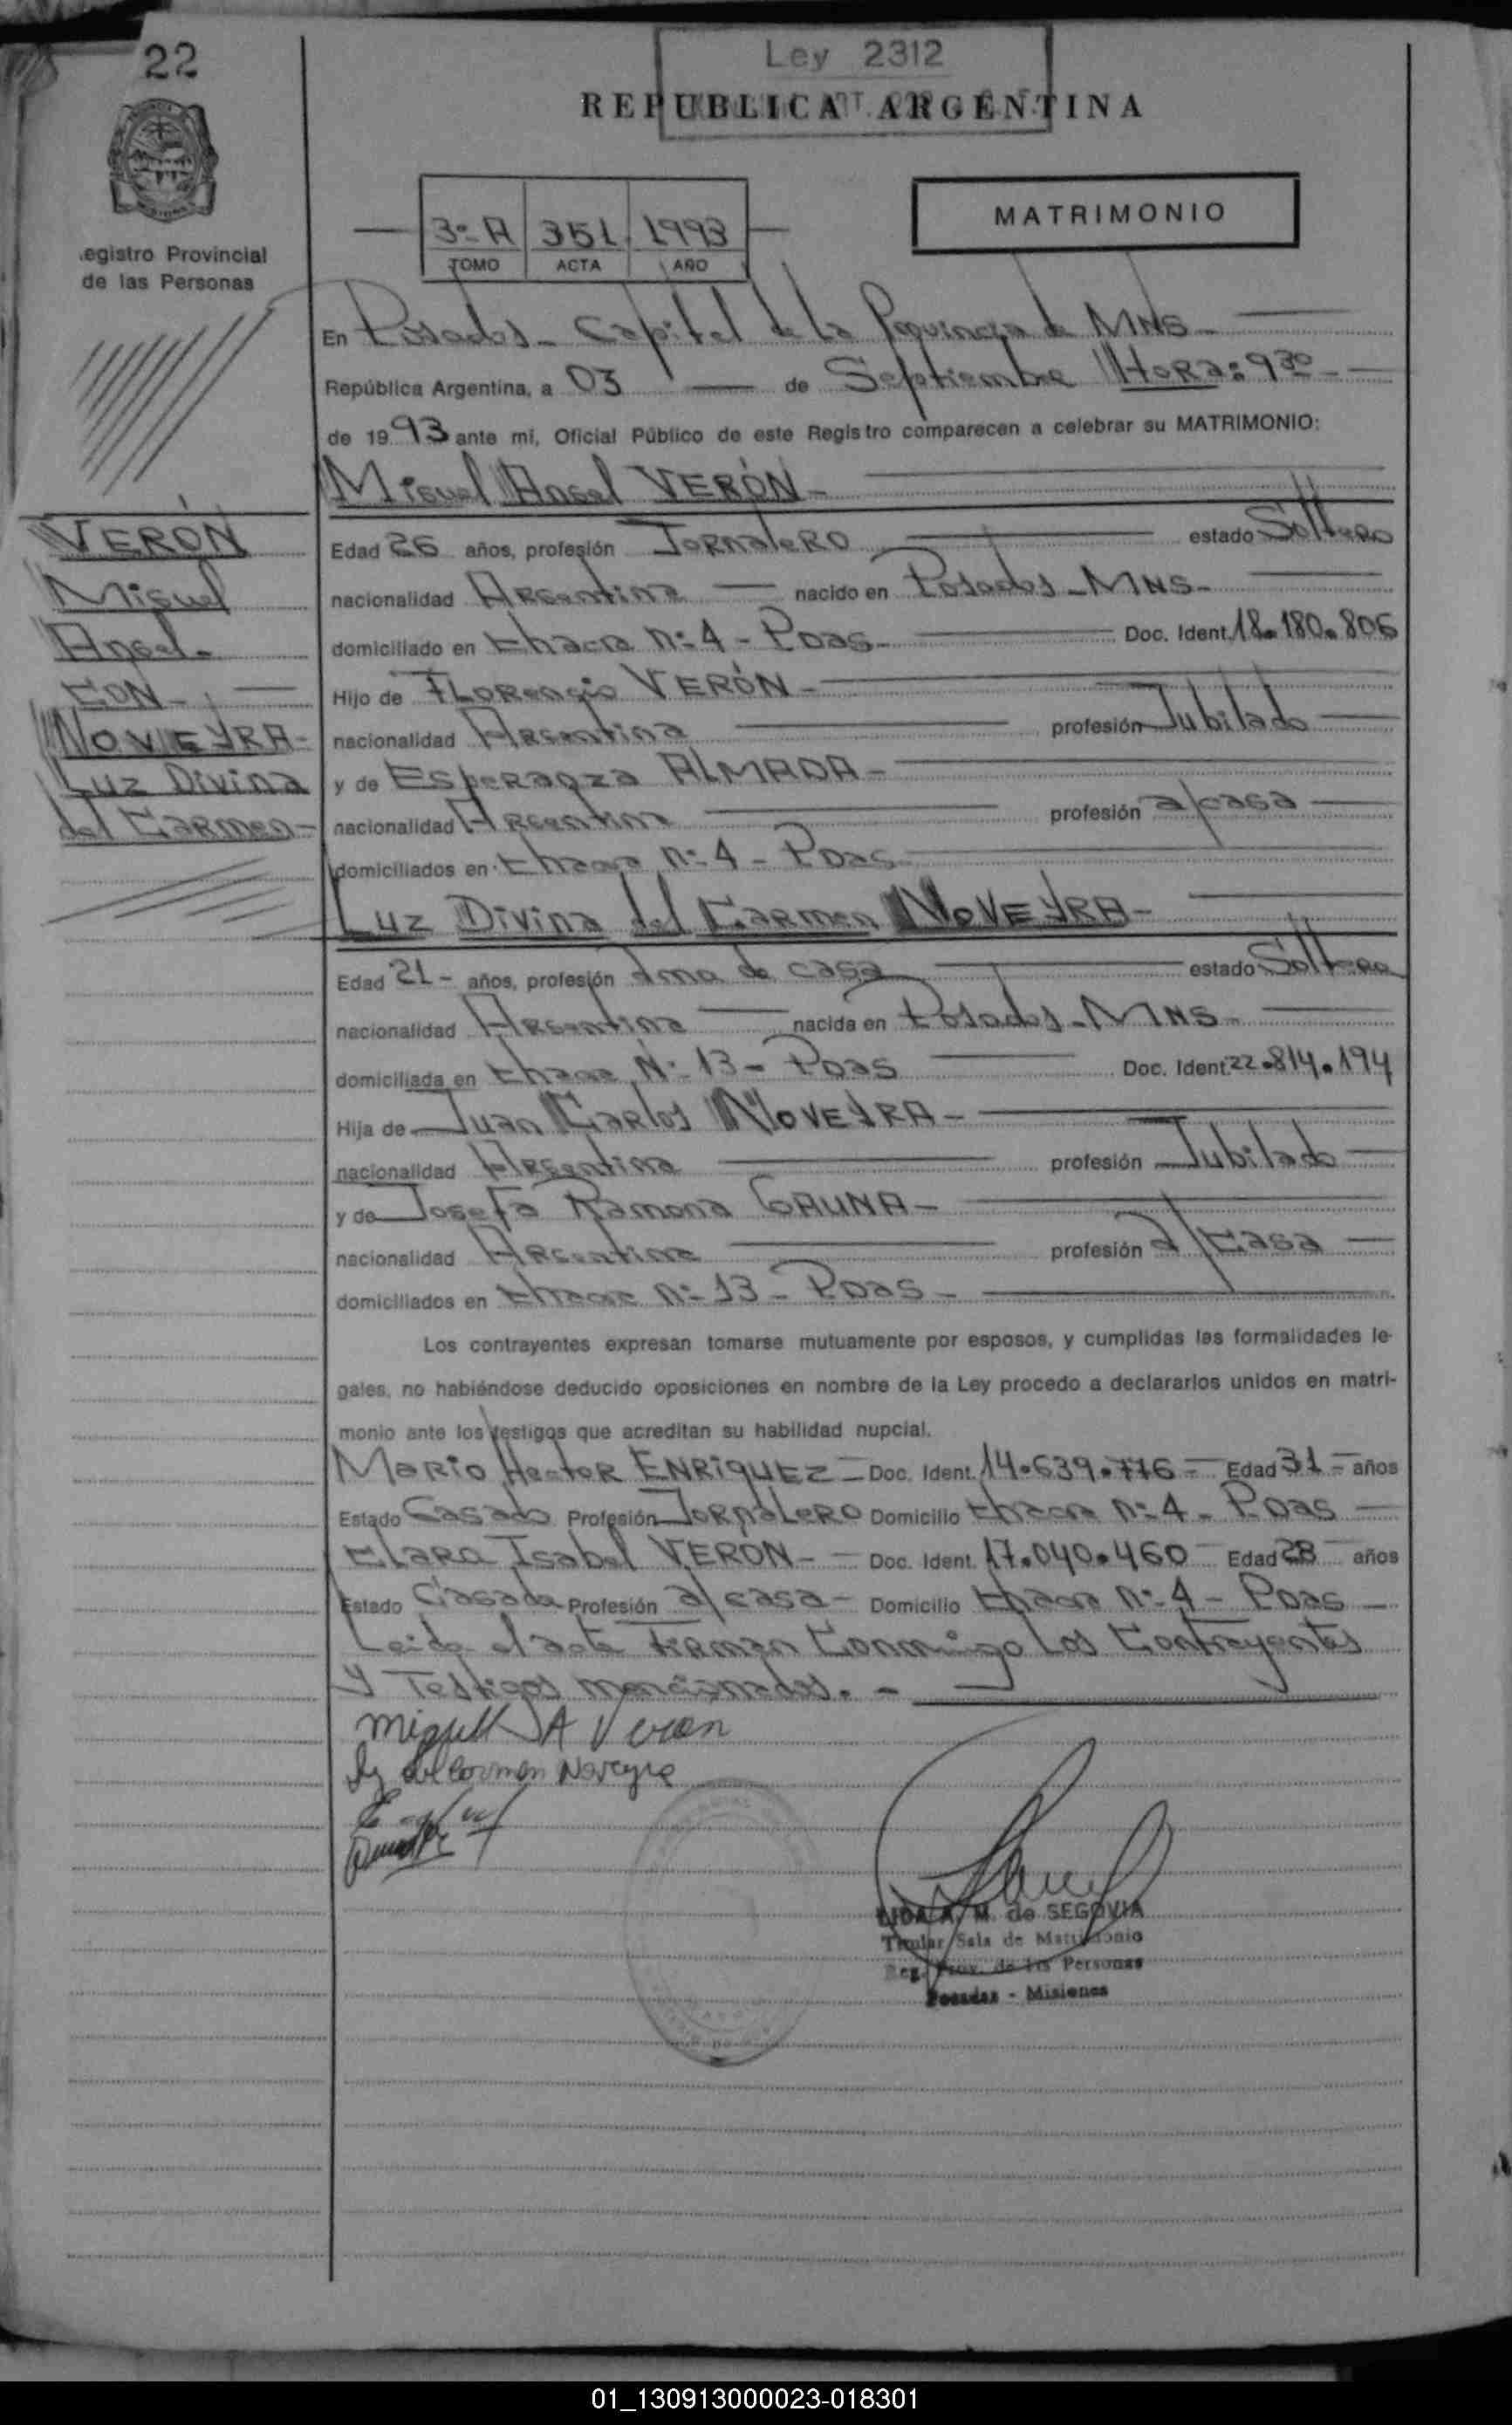 22
Ley 2312
REPUBLICA ARGENTINA
MATRIMONIO
3º A 351 1993
TOMO ACTA AÑO
egistro Provincial
de las Personas
En Posadas - Capital de la Provincia de MNS -
República Argentina, a 03 de Septiembre Hora: 9 30 -
de 1993 ante mi, Oficial Público de este Registro comparecen a celebrar su MATRIMONIO:
Miguel Angel VERÓN -
VERÓN
Miguel
Angel -
CON -
NOVEYRA -
Luz Divina
del Carmen -
Edad 26 años, profesión Jornalero estado Soltero
nacionalidad Argentina nacido en Posadas - MNS -
domiciliado en Chacra Nº 4 - Pdas - Doc. Ident. 18.180.806
Hijo de Florencio VERÓN -
nacionalidad Argentina profesión Jubilado
y de Esperanza ALMADA -
nacionalidad Argentina profesión a/casa
domiciliados en Chacra Nº 4 - Pdas -
Luz Divina del Carmen NOVEYRA -
Edad 21 - años, profesión Ama de casa estado Soltera
nacionalidad Argentina nacida en Posadas - MNS -
domiciliada en Chacra Nº 13 - Pdas Doc. Ident. 22.814.194
Hija de Juan Carlos NOVEYRA -
nacionalidad Argentina profesión Jubilado
y de Josefa Ramona GAUNA -
nacionalidad Argentina profesión a/casa
domiciliados en Chacra Nº 13 - Pdas -
Los contrayentes expresan tomarse mutuamente por esposos, y cumplidas las formalidades le-
gales, no habiéndose deducido oposiciones en nombre de la Ley procedo a declararlos unidos en matri-
monio ante los testigos que acreditan su habilidad nupcial.
Mario Hector ENRIQUEZ - Doc. Ident. 14.639.776 - Edad 31 - años
Estado Casado Profesión Jornalero Domicilio Chacra Nº 4 - Pdas
Clara Isabel VERON - Doc. Ident. 17.040.460 Edad 28 años
Estado Casada Profesión a/casa - Domicilio Chacra Nº 4 - Pdas
Leida el acta firman conmigo los contrayentes
y Testigos mencionados. -
Miguel A Veron
Luz del Carmen Noveyra
LIDA A. M. de SEGOVIA
Titular Sala de Matrimonio
Reg. Prov. de las Personas
Posadas - Misiones
01_130913000023-018301